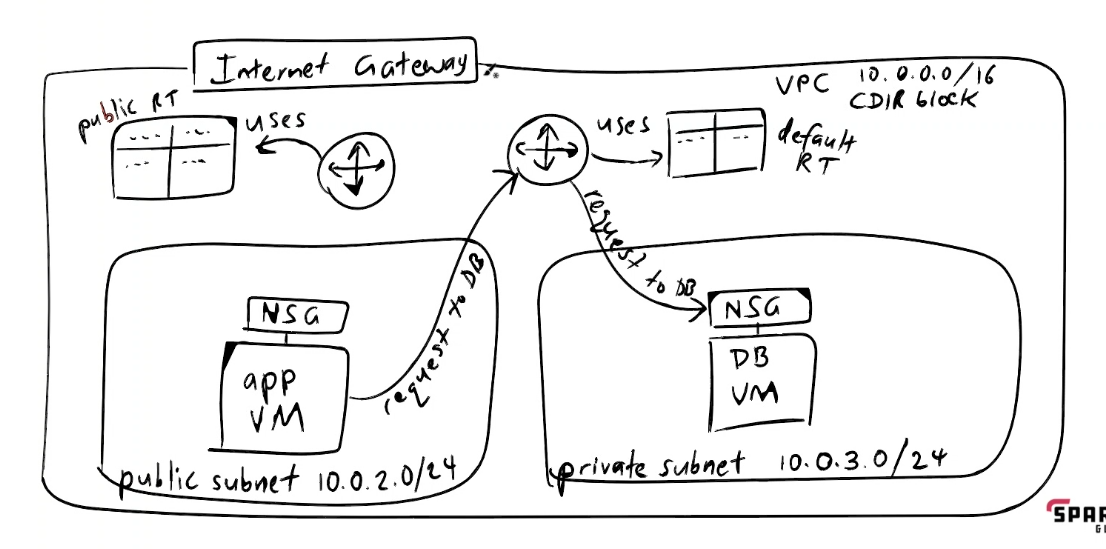 Internet Gateway
VPC 10.0.0.0/16
CDIR block
public RT
uses
uses
default
RT
request to DB
request to DB
NSG
app
VM
public subnet 10.0.2.0/24
NSG
DB
VM
private subnet 10.0.3.0/24